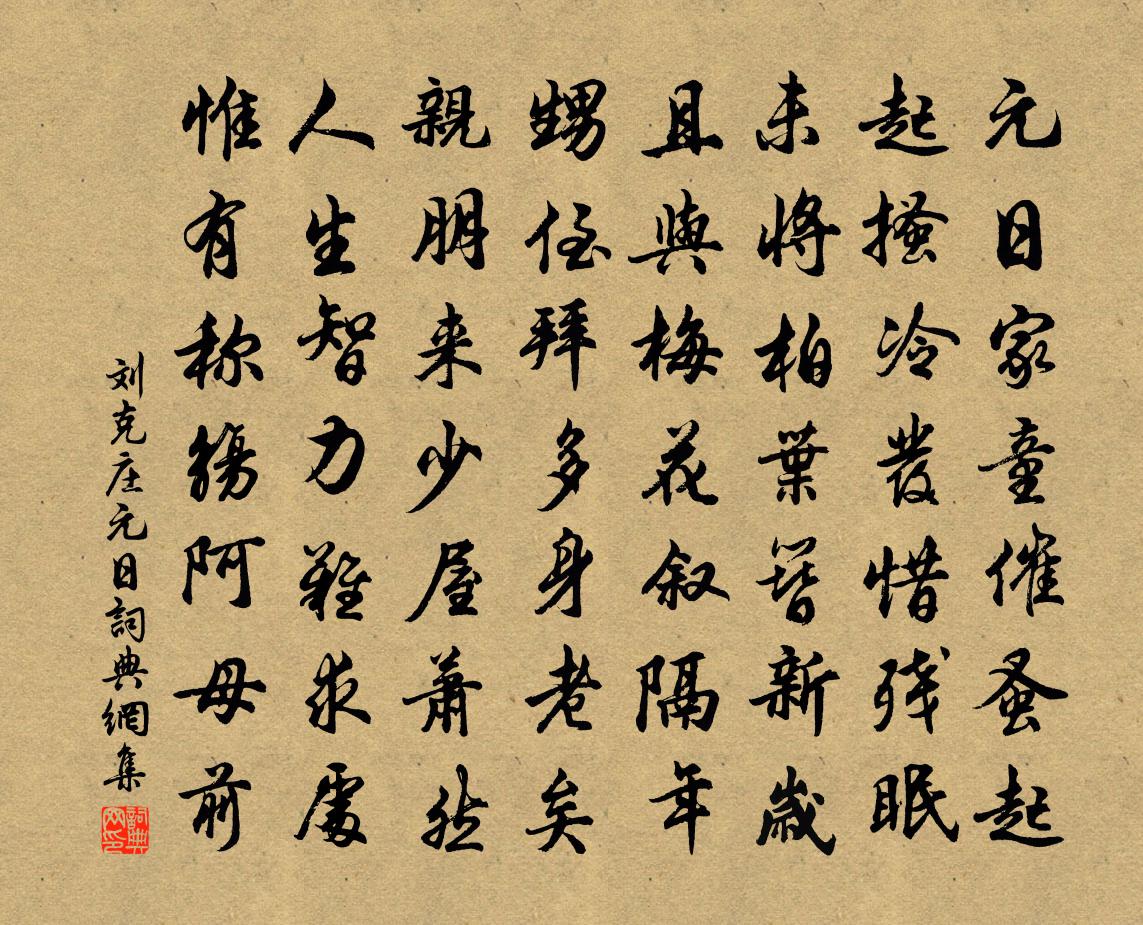 元日家童催蚤起
起搔冷發惜残眠
未將柏葉簪新歲
且與梅花叙隔年
甥侄拜多身老矣
親朋来少屋蕭然
人生智力難求處
惟有称觴阿母前
刘克庄元日詞典網集
詞典网印